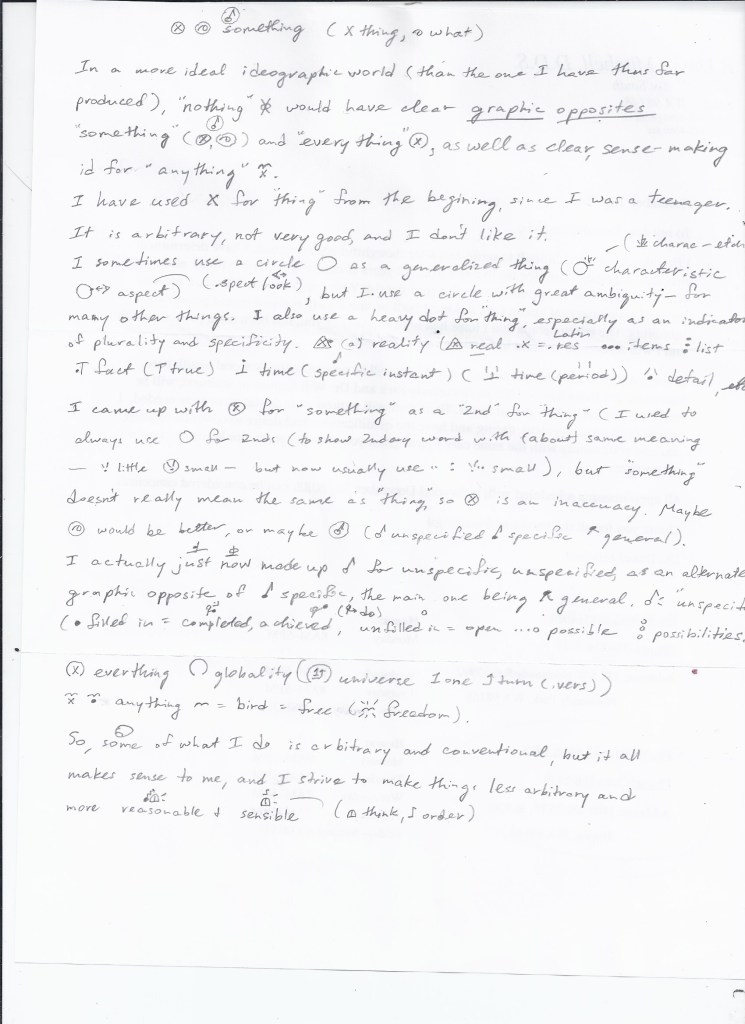 ⓧ something (x thing, what)
In a more ideal ideographic world (than the one I have thus far
produced), "nothing" would have clear graphic opposites
"something" ( , ) and "everything" ⓧ, as well as clear, sense-making
id for "anything" .
I have used X for "thing" from the begining, since I was a teenager.
It is arbitrary, not very good, and I don't like it. ( charac - etch
I sometimes use a circle ○ as a generalized thing ( characteristic
aspect) (.spect look), but I use a circle with great ambiguity - for
many other things. I also use a heavy dot for "thing", especially as an indicator
of plurality and specificity. (a) reality ( real .x = .res Latin ... items list
.T fact (T true) time (specific instant) ( time (period)) detail, etc
I came up with ⓧ for "something" as a "2nd" for "thing" (I used to
always use ○ for 2nds (to show 2ndary word with (about) same meaning
— little small — but now usually use .. : small), but "something"
doesnt really mean the same as "thing", so ⓧ is an inaccuracy. Maybe
would be better, or maybe ( unspecified specific general).
I actually just now made up for unspecific, unspecified, as an alternate
graphic opposite of specific, the main one being general. "unspecif
(• filled in = completed, achieved, (do) unfilled in = open ...o possible possibilities.
(x) everthing globality ( universe 1 one turn (.vers))
anything ~ = bird = free ( freedom).
So, some of what I do is arbitrary and conventional, but it all
makes sense to me, and I strive to make things less arbitrary and
more reasonable & sensible ( think, order)